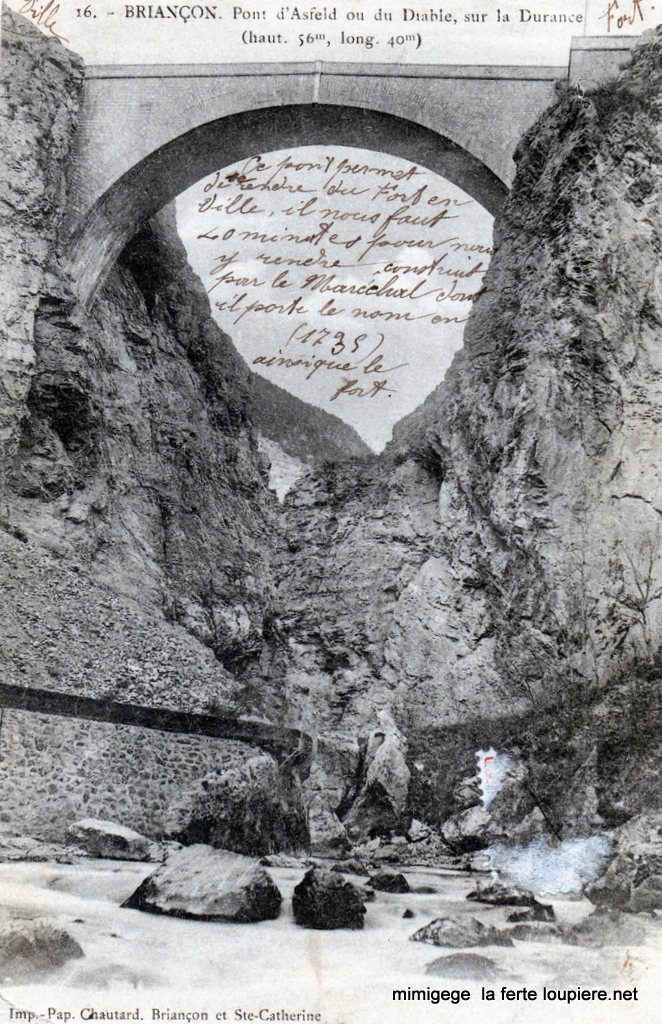 Ville
16. - BRIANÇON. Pont d'Asfeld ou du Diable, sur la Durance
Fort.
(haut. 56m, long. 40m)
Ce pont permet
de rendre du Fort en
Ville, il nous faut
20 minutes pour nous
y rendre, construit
par le Maréchal dont
il porte le nom en
(1735)
ainsi que le
fort.
mimigege la ferte loupiere.net
Imp.-Pap. Chautard, Briançon et Ste-Catherine